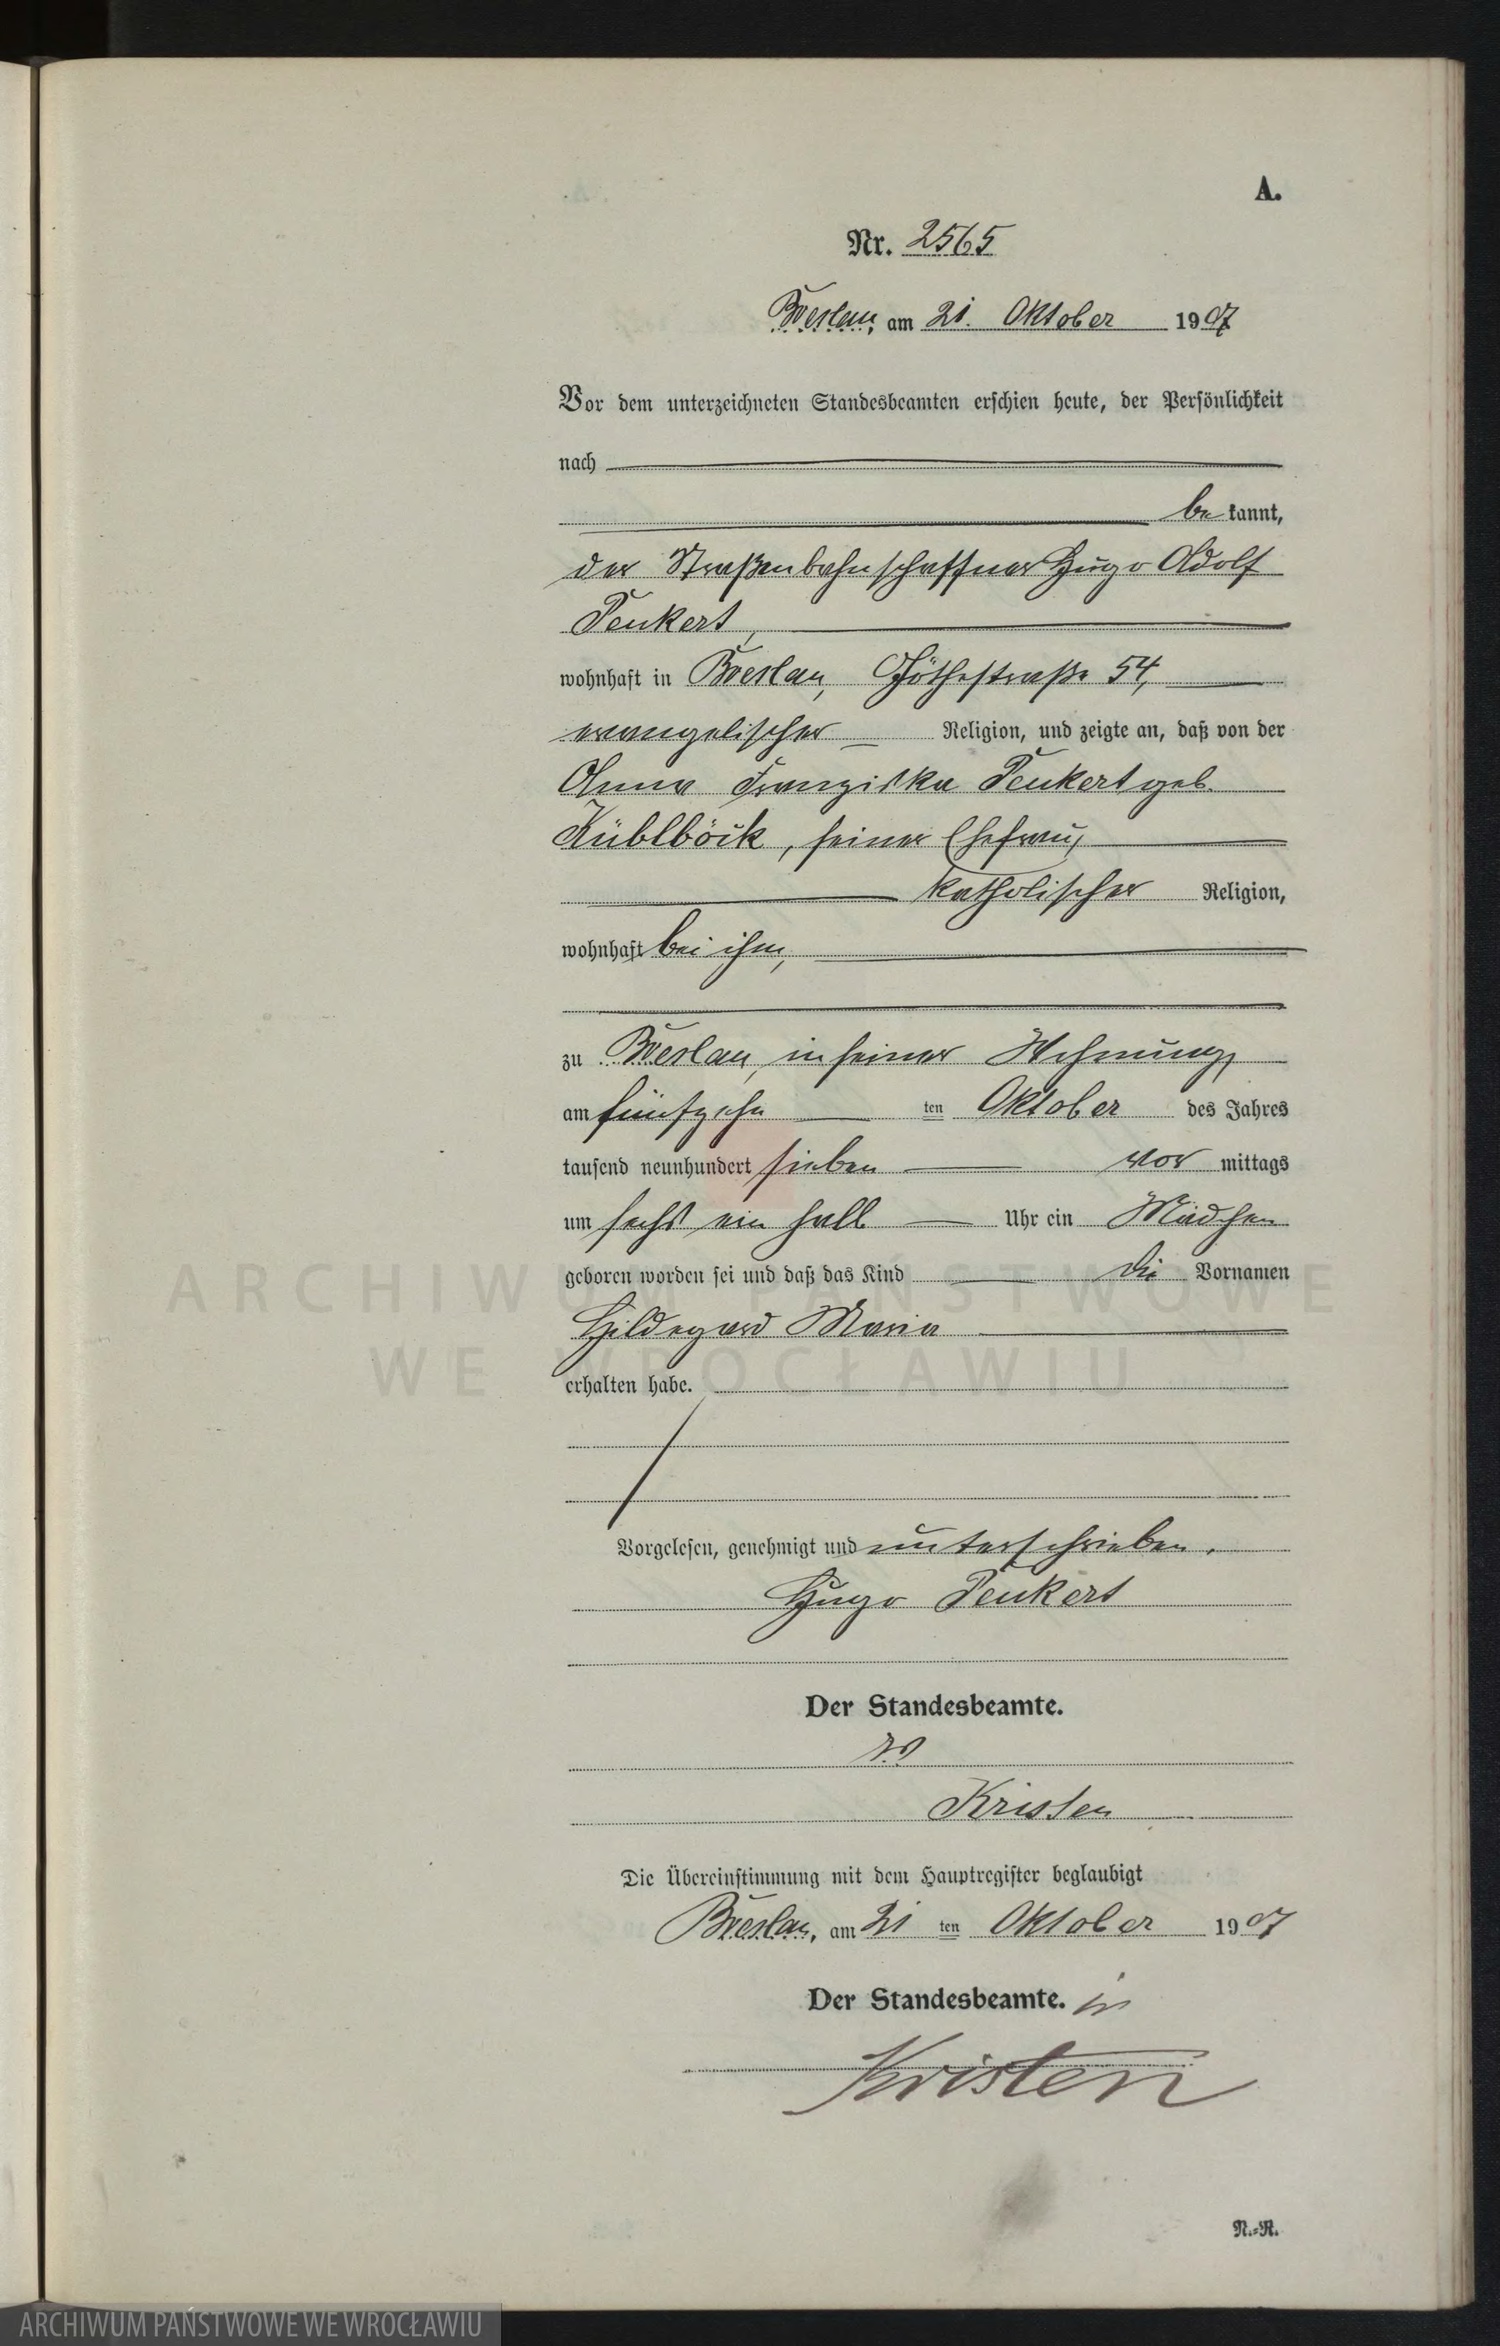 A.
Nr. 2565
Breslau, am 21. Oktober 1907
Vor dem unterzeichneten Standesbeamten erschien heute, der Persönlichkeit
nach
be kannt,
der Straßenbahnschaffner Hugo Adolf
Peukert,
wohnhaft in Breslau, Göthestraße 54,
evangelischer Religion, und zeigte an, daß von der
Anna Franziska Peukert geb.
Küblböck, seiner Ehefrau,
katholischer Religion,
wohnhaft bei ihm,
zu Breslau, in seiner Wohnung,
am fünfzehn ten Oktober des Jahres
tausend neunhundert sieben vor mittags
um sechs ein halb Uhr ein Mädchen
geboren worden sei und daß das Kind die Vornamen
Hildegard Maria
erhalten habe.
Vorgelesen, genehmigt und unterschrieben.
Hugo Peukert
Der Standesbeamte.
Kristen
Die Übereinstimmung mit dem Hauptregister beglaubigt
Breslau, am 21 ten Oktober 1907
Der Standesbeamte.
Kristen
N.-R.
ARCHIWUM PAŃSTWOWE
WE WROCŁAWIU
ARCHIWUM PAŃSTWOWE WE WROCŁAWIU